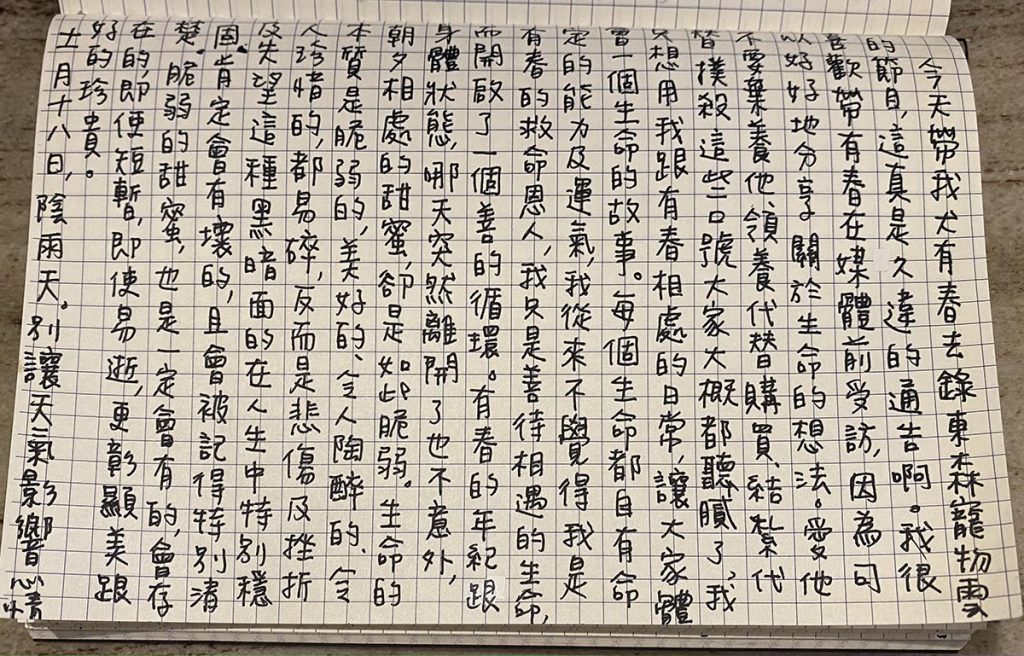 今天帶我犬有春去錄東森寵物雲
的節目,這真是久違的通告啊。我很
喜歡帶有春在媒體前受訪,因為可
以好好地分享關於生命的想法。愛他
不要棄養他、領養代替購買、結紮代
替撲殺這些口號大家大概都聽膩了,我
只想用我跟有春相處的日常,讓大家體
會一個生命的故事。每個生命都自有命
定的能力及運氣,我從來不覺得我是
有春的救命恩人,我只是善待相遇的生命,
而開啟了一個善的循環。有春的年紀跟
身體狀態,哪天突然離開了也不意外,
朝夕相處的甜蜜,卻是如此脆弱。生命的
本質是脆弱的,美好的、令人陶醉的、令
人珍惜的,都易碎,反而是悲傷及挫折
及失望這種黑暗面的在人生中特別穩
固。肯定會有壞的,且會被記得特別清
楚。脆弱的甜蜜,也是一定會有的,會存
在的,即便短暫,即使易逝,更彰顯美跟
好的珍貴。
十一月十八日,陰雨天。別讓天氣影響心情